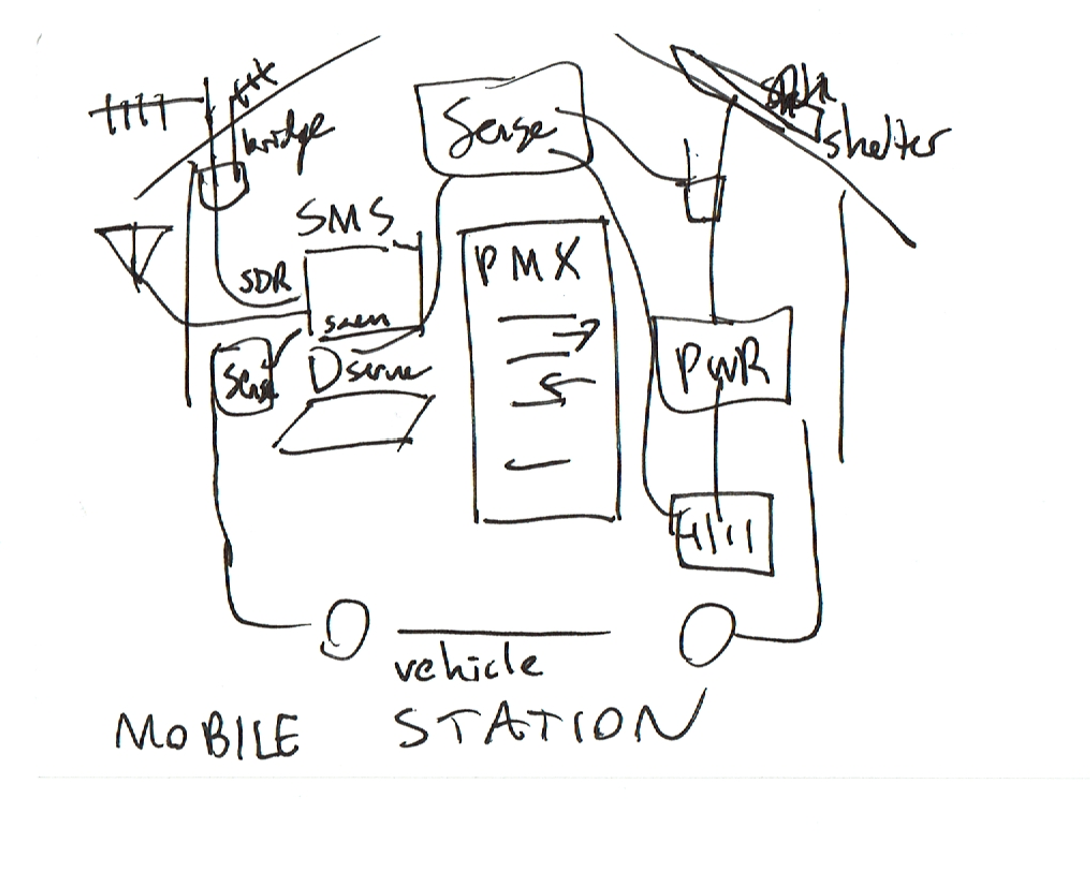 bridge
Sense
shelter
SMS
PMX
SDR
Sense
D serve
PWR
vehicle
MOBILE STATION